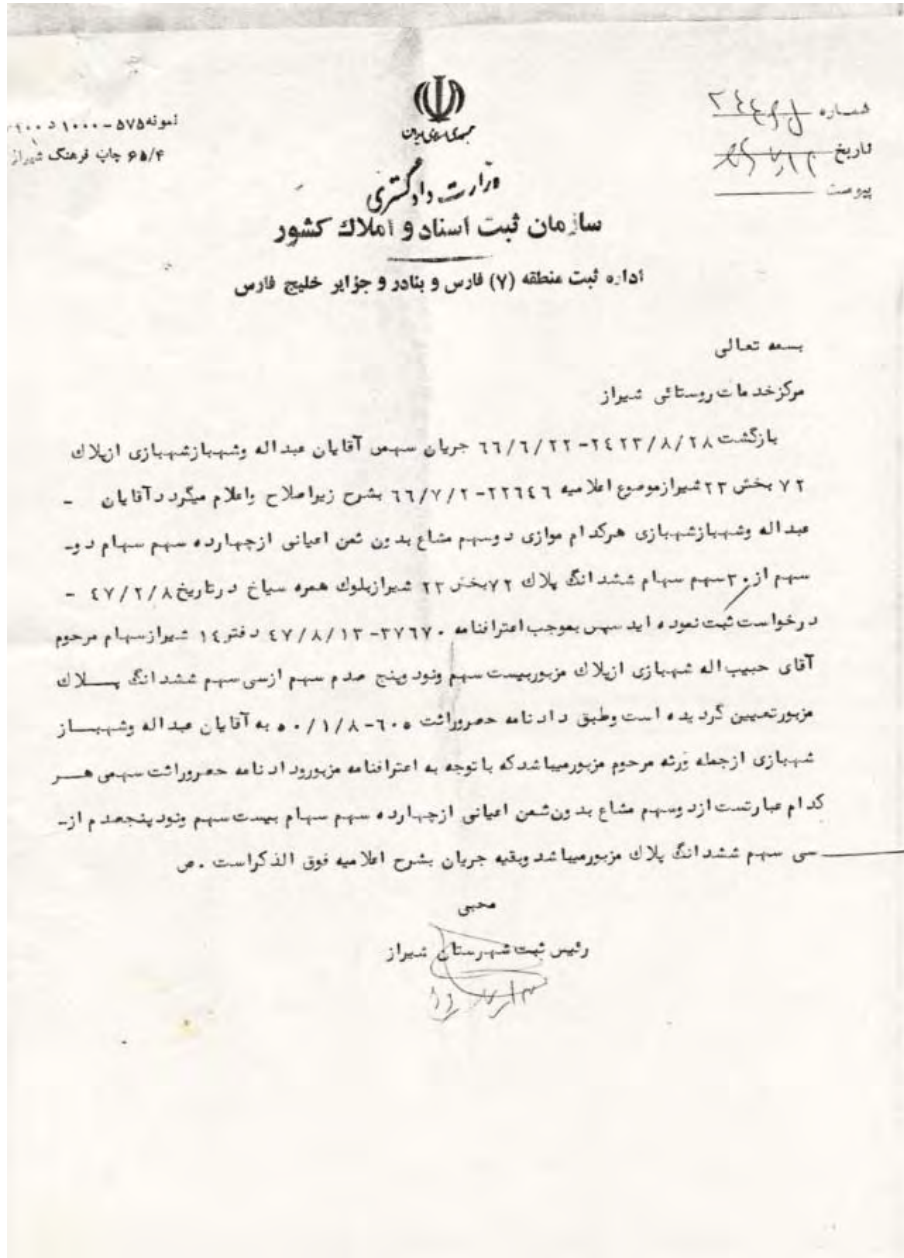 جمهوری اسلامی ایران
شماره
تاریخ
پیوست
نمونه ۵۷۵ - ۱۰۰۰
۶۵/۴ چاپ فرهنگ شیراز
وزارت دادگستری
سازمان ثبت اسناد و املاک کشور
اداره ثبت منطقه (۷) فارس و بنادر و جزایر خلیج فارس
بسمه تعالی
مرکز خدمات روستائی شیراز
بازگشت ۲۴۲۳/۸/۲۸-۶۶/۶/۲۲ جریان سهمی آقایان عبداله وشهبازشهبازی ازپلاک
۷۲ بخش ۲۳ شیرازموضوع اعلامیه ۲۲۶۴۶-۶۶/۷/۲ بشرح زیراصلاح واعلام میگردد آقایان -
عبداله وشهبازشهبازی هرکدام موازی دوسهم مشاع بدون ثمن اعیانی ازچهارده سهم سهام دو-
سهم از ۳۰ سهم سهام ششدانگ پلاک ۷۲ بخش ۲۳ شیرازبلوک همره سیاخ درتاریخ ۴۷/۲/۸ -
درخواست ثبت نموده اید سپس بموجب اعترافنامه ۳۷۶۷۰-۴۷/۸/۱۳ دفتر ۱۴ شیرازسهام مرحوم
آقای حبیب اله شهبازی ازپلاک مزبوربیست سهم ونود وپنج صدم سهم ازسی سهم ششدانگ پـــلاک
مزبورتعیین گردیده است وطبق دادنامه حصروراثت ۶۰۵-۵۰/۱/۸ به آقایان عبداله وشهبـــاز
شهبازی ازجمله ورثه مرحوم مزبورمیباشدکه با توجه به اعترافنامه مزبورودادنامه حصروراثت سهمی هـــر
کدام عبارتست ازدوسهم مشاع بدون ثمن اعیانی ازچهارده سهم سهام بیست سهم ونودپنجصدم از-
سی سهم ششدانگ پلاک مزبورمیباشد وبقیه جریان بشرح اعلامیه فوق الذکراست .ص
محبی
رئیس ثبت شهرستان شیراز